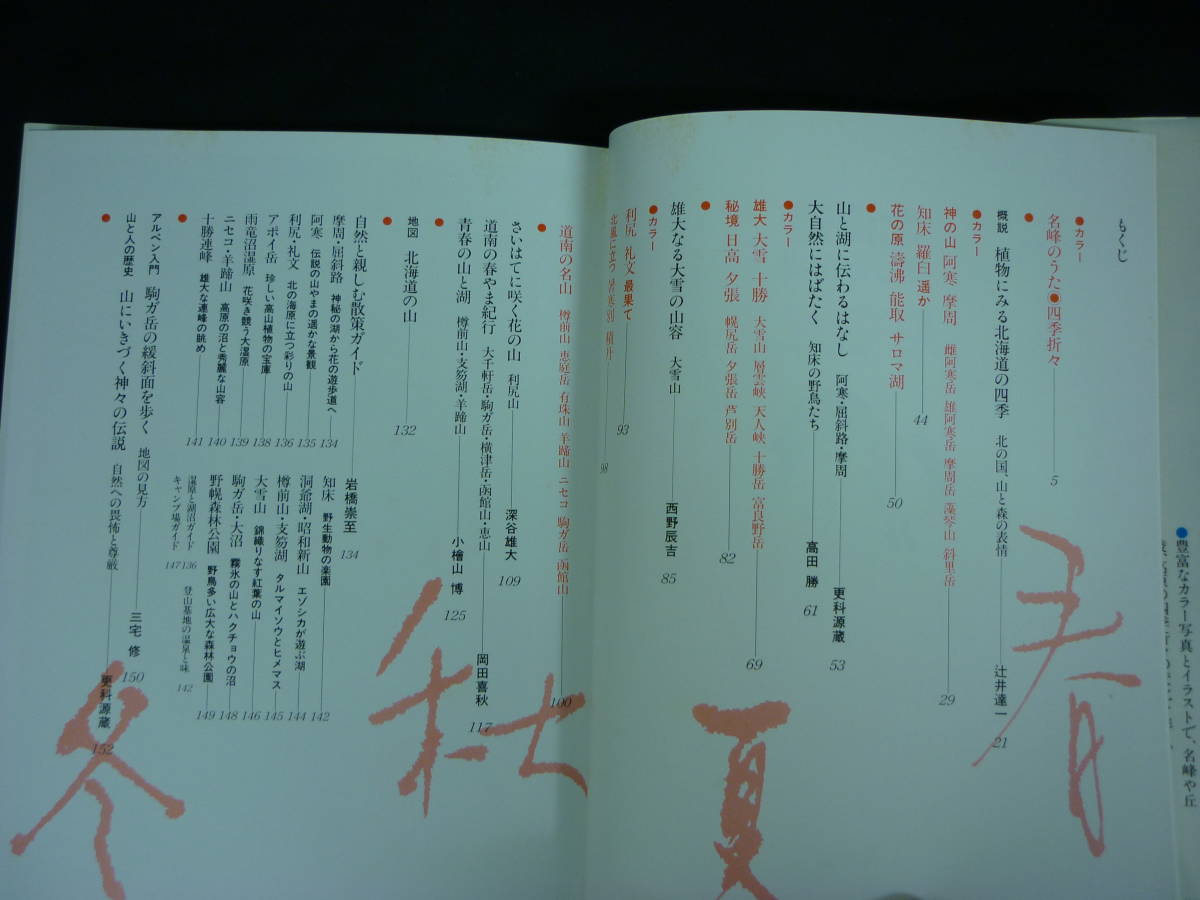 もくじ
●カラー
名峰のうた●四季折々 5
概説 植物にみる北海道の四季 北の国、山と森の表情 辻井達一 21
●カラー
神の山 阿寒 摩周 雌阿寒岳 雄阿寒岳 摩周岳 藻琴山 斜里岳 29
知床 羅臼 遥か 44
花の原 濤沸 能取 サロマ湖 50
●
山と湖に伝わるはなし 阿寒・屈斜路・摩周 更科源蔵 53
大自然にはばたく 知床の野鳥たち 高田 勝 61
●カラー
雄大 大雪 十勝 大雪山 層雲峡 天人峡 十勝岳 富良野岳 69
秘境 日高 夕張 幌尻岳 夕張岳 芦別岳 82
●
雄大なる大雪の山容 大雪山 西野辰吉 85
●カラー
利尻 礼文 最果て 93
北風に立つ 暑寒別 積丹 98
道南の名山 樽前山 恵庭岳 有珠山 羊蹄山 ニセコ 駒ガ岳 函館山 100
●
さいはてに咲く花の山 利尻山 深谷雄大 109
道南の春やま紀行 大千軒岳・駒ガ岳・横津岳・函館山・恵山 岡田喜秋 117
青春の山と湖 樽前山・支笏湖・羊蹄山 小檜山 博 125
●
地図 北海道の山 132
●
自然と親しむ散策ガイド 岩橋崇至 134
摩周・屈斜路 神秘の湖から花の遊歩道へ 134
阿寒 伝説の山やまの遥かな景観 135
利尻・礼文 北の海原に立つ彩りの山 136
アポイ岳 珍しい高山植物の宝庫 138
雨竜沼湿原 花咲き競う大湿原 139
ニセコ・羊蹄山 高原の沼と秀麗な山容 140
十勝連峰 雄大な連峰の眺め 141
知床 野生動物の楽園 142
洞爺湖・昭和新山 エゾシカが遊ぶ湖 144
樽前山・支笏湖 タルマイソウとヒメマス 145
大雪山 錦織りなす紅葉の山 146
駒ガ岳・大沼 霧氷の山とハクチョウの沼 148
野幌森林公園 野鳥多い広大な森林公園 149
湿原と湖沼ガイド 136
キャンプ場ガイド 147
登山基地の温泉と味 142
●
アルペン入門 駒ガ岳の緩斜面を歩く 地図の見方 三宅 修 150
山と人の歴史 山にいきづく神々の伝説 自然への畏怖と尊厳 更科源蔵 152
●
春
夏
秋
冬
●豊富なカラー写真とイラストで、名峰や丘